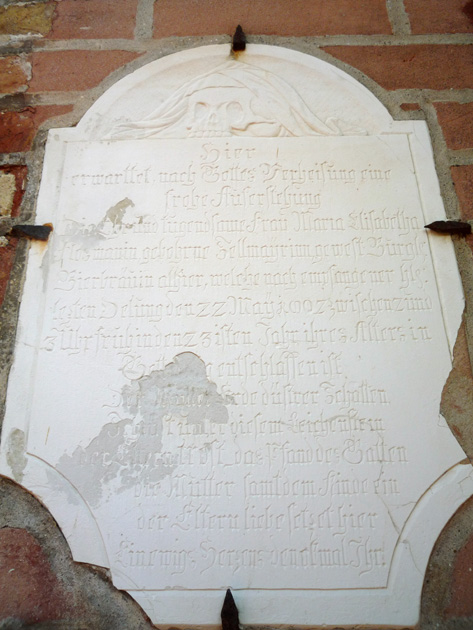 Hier
erwarttet, nach Gottes Verheisung eine
frohe Auferstehung
und tugentsame Frau Maria Elisabetha
gebohrne Zellmayrin gewest Bürgl.
Bierbräuin alhier, welche nach empfangener hle.
letzten Oelung den 22 May zwischen 2 und
3 Uhr frühe in den 23isten Jahr ihres Alters in
Gott entschlaffen ist.
Erde düstrer Schossen
unter diesem Leichenstein
ist das Pfand des Gatten
die Mutter samt dem Kinde ein
der Eltern liebe setzet hier
Ein ewigs Herzens denckmal Ihr